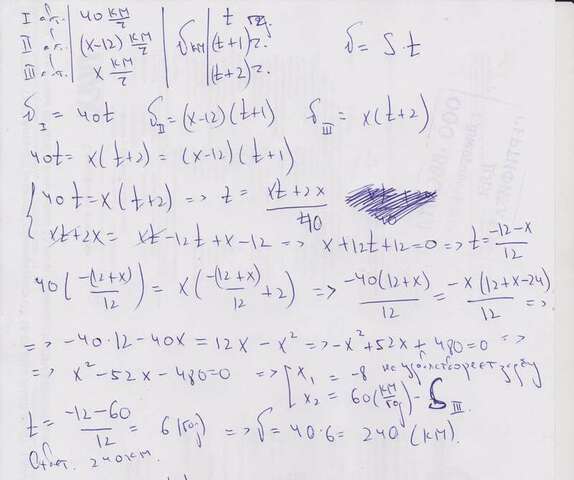 I авт. | 40 км/г | | t г.
II авт. | (x-12) км/г | S км | (t+1) г. S = S·t
III авт. | x км/г | | (t+2) г.
S_I = 40t S_II = (x-12)(t+1) S_III = x(t+2)
40t = x(t+2) = (x-12)(t+1)
{ 40t = x(t+2) => t = (xt+2x)/40
xt+2x = xt-12t+x-12 => x+12t+12=0 => t = (-12-x)/12
40(-(12+x)/12) = x(-(12+x)/12 + 2) => -40(12+x)/12 = -x(12+x-24)/12 =>
=> -40·12-40x = 12x - x² => -x²+52x+480=0 =>
=> x²-52x-480=0 => [ x₁ = -8 не удовлетворяет задачу
x₂ = 60 (км/год) - S_III.
t = (-12-60)/12 = 6 (год) => S = 40·6 = 240 (км).
Ответ. 240 км.